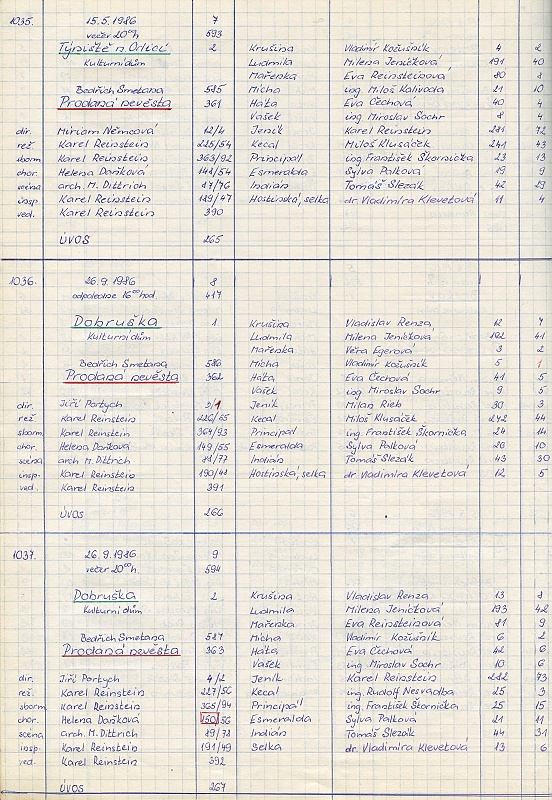 1035. 15.5.1986 7
večer 20⁰⁰h 593
Týniště n. Orlicí 2 Krušina Vladimír Kožušník 4 2
Kulturní dům Ludmila Milena Jeníčková 191 40
Mařenka Eva Reinsteinová 80 8
Bedřich Smetana 585 Mícha ing Miloš Kalivoda 21 10
Prodaná nevěsta 361 Háta Eva Čechová 40 4
Vašek ing Miroslav Sochr 8 4
dir. Miriam Němcová 12/4 Jeník Karel Reinstein 281 72
rež. Karel Reinstein 225/54 Kecal Miloš Klusáček 241 43
sborm. Karel Reinstein 363/92 Principal ing František Škornička 23 13
chor. Helena Daňková 144/54 Esmeralda Sylva Palková 19 9
scéna arch. M. Dittrich 17/76 Indian Tomáš Slezák 42 29
insp. Karel Reinstein 189/47 Hostinská, selka dr Vladimíra Klevetová 11 4
ved. Karel Reinstein 390
ÚVOS 265
1036. 26.9.1986 8
odpoledne 16⁰⁰hod. 417
Dobruška 1 Krušina Vladislav Renza 12 7
Kulturní dům Ludmila Milena Jeníčková 192 41
Mařenka Věra Egerová 3 2
Bedřich Smetana 586 Mícha Vladimír Kožušník 5 1
Prodaná nevěsta 362 Háta Eva Čechová 41 5
Vašek ing Miroslav Sochr 9 5
dir. Jiří Partych 3/1 Jeník Milan Rieb 30 3
rež. Karel Reinstein 226/55 Kecal Miloš Klusáček 242 44
sborm. Karel Reinstein 364/93 Principal ing František Škornička 24 14
chor. Helena Daňková 149/55 Esmeralda Sylva Palková 20 10
scéna arch M. Dittrich 18/77 Indian Tomáš Slezák 43 30
insp. Karel Reinstein 190/48 Hostinská, selka dr Vladimíra Klevetová 12 5
ved. Karel Reinstein 391
ÚVOS 266
1037. 26.9.1986 9
večer 20⁰⁰h. 594
Dobruška 2 Krušina Vladislav Renza 13 8
Kulturní dům Ludmila Milena Jeníčková 193 42
Mařenka Eva Reinsteinová 81 9
Bedřich Smetana 587 Mícha Vladimír Kožušník 6 2
Prodaná nevěsta 363 Háta Eva Čechová 42 6
Vašek ing Miroslav Sochr 10 6
dir. Jiří Partych 4/2 Jeník Karel Reinstein 282 73
rež. Karel Reinstein 227/56 Kecal ing Rudolf Nesvadba 25 3
sborm. Karel Reinstein 365/94 Principal ing František Škornička 25 15
chor. Helena Daňková 150/56 Esmeralda Sylva Palková 21 11
scéna arch. M. Dittrich 19/78 Indian Tomáš Slezák 44 31
insp. Karel Reinstein 191/49 Selka dr. Vladimíra Klevetová 13 6
ved. Karel Reinstein 392
ÚVOS 267